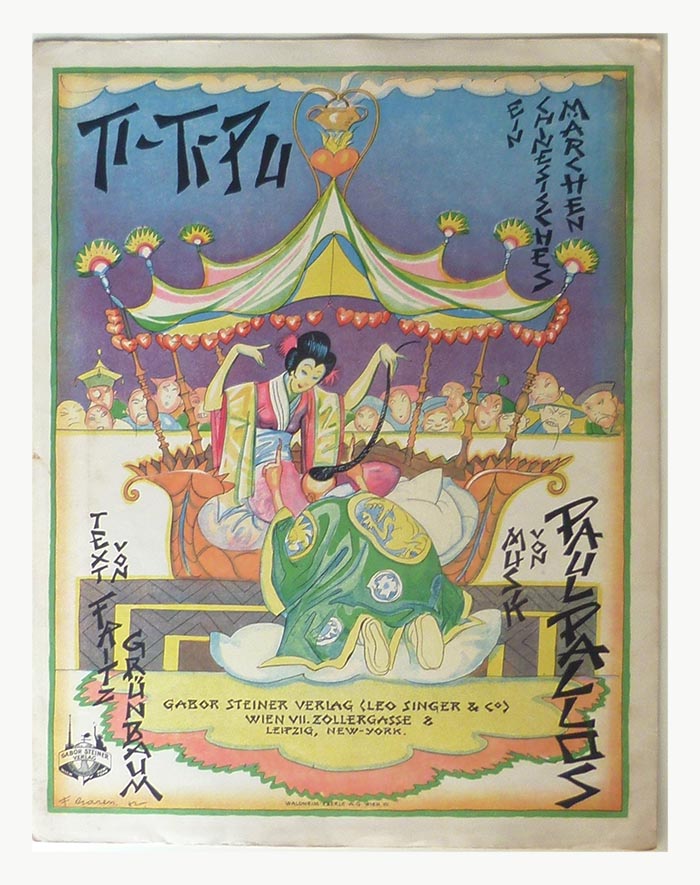 TI-TI-PU
EIN
CHINESISCHES
MÄRCHEN
TEXT
VON
FRITZ
GRÜNBAUM
MUSIK
VON
PAUL PALLOS
GABOR STEINER VERLAG (LEO SINGER & Co)
WIEN VII. ZOLLERGASSE 8
LEIPZIG, NEW-YORK.
GABOR STEINER
VERLAG
WALDHEIM EBERLE A.G. WIEN VII